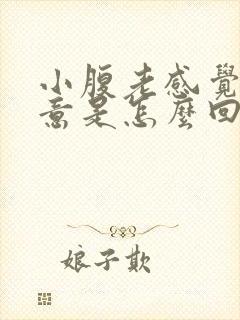 小腹老感覺
意是怎麼回
娘子欺